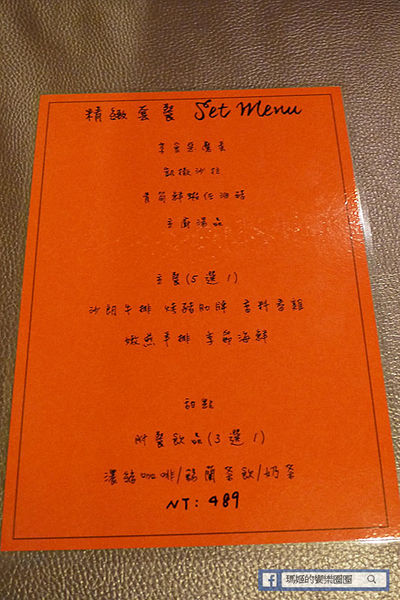 精緻套餐 Set Menu
凱撒沙拉
青醬鮮蝦佐油醋
主廚湯品
主餐(5選1)
沙朗牛排 烤豬肋牌 香料春雞
嫩煎羊排 季節海鮮
甜點
附餐飲品(3選1)
濃縮咖啡/錫蘭茶飲/奶茶
NT: 489
瑪姬的樂樂圈圈